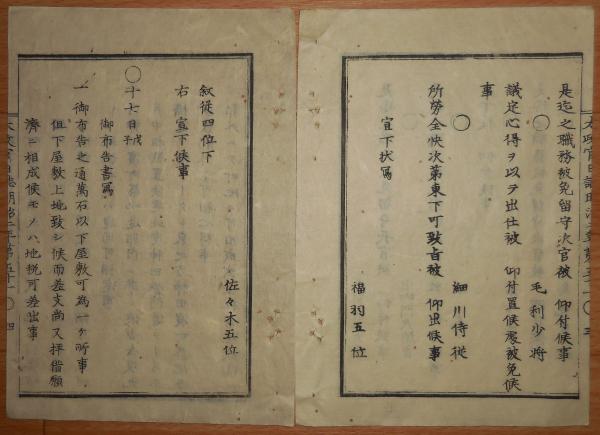 是迄之職務被免留守次官被 仰付候事
○
毛利少将
議定心得ヲ以テ出仕被 仰付置候処被免候
事
○
細川侍従
所勞全快次第東下可致旨被 仰出候事
宣下状写
福羽五位
叙従四位下
右 宣下候事
佐々木五位
○十七日戊子
御布告書写
一御布告之通萬石以下屋敷可為一ヶ所事
但下屋敷上地致シ候而差支尚又拝借願
濟ニ相成候モノハ地税可差出事
太政官日誌明治二年第五十一
○
四